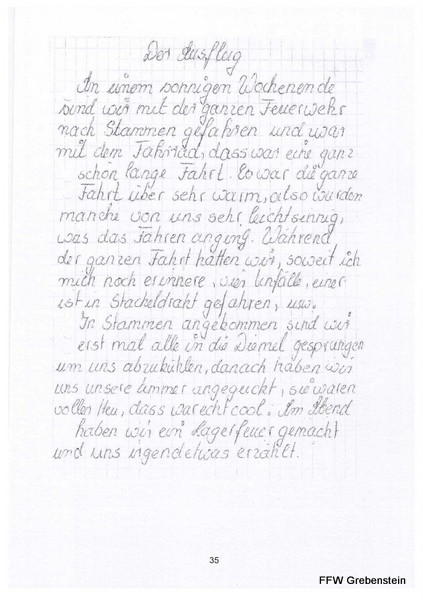 Der Ausflug
An einem sonnigen Wochenende
sind wir mit der ganzen Feuerwehr
nach Stammen gefahren und war
mit dem Fahrrad, dass war eine ganz
schön lange Fahrt. Es war die ganze
Fahrt über sehr warm, also wurden
manche von uns sehr leichtsinnig,
was das Fahren anging. Während
der ganzen Fahrt hatten wir, soweit ich
mich noch erinnere, vier Unfälle, einer
ist in Stacheldraht gefahren, usw.
In Stammen angekommen sind wir
erst mal alle in die Diemel gesprungen
um uns abzukühlen, danach haben wir
uns unsere Zimmer angeguckt, sie waren
voller Heu, dass war echt cool. Am Abend
haben wir ein Lagerfeuer gemacht
und uns irgendetwas erzählt.
35
FFW Grebenstein